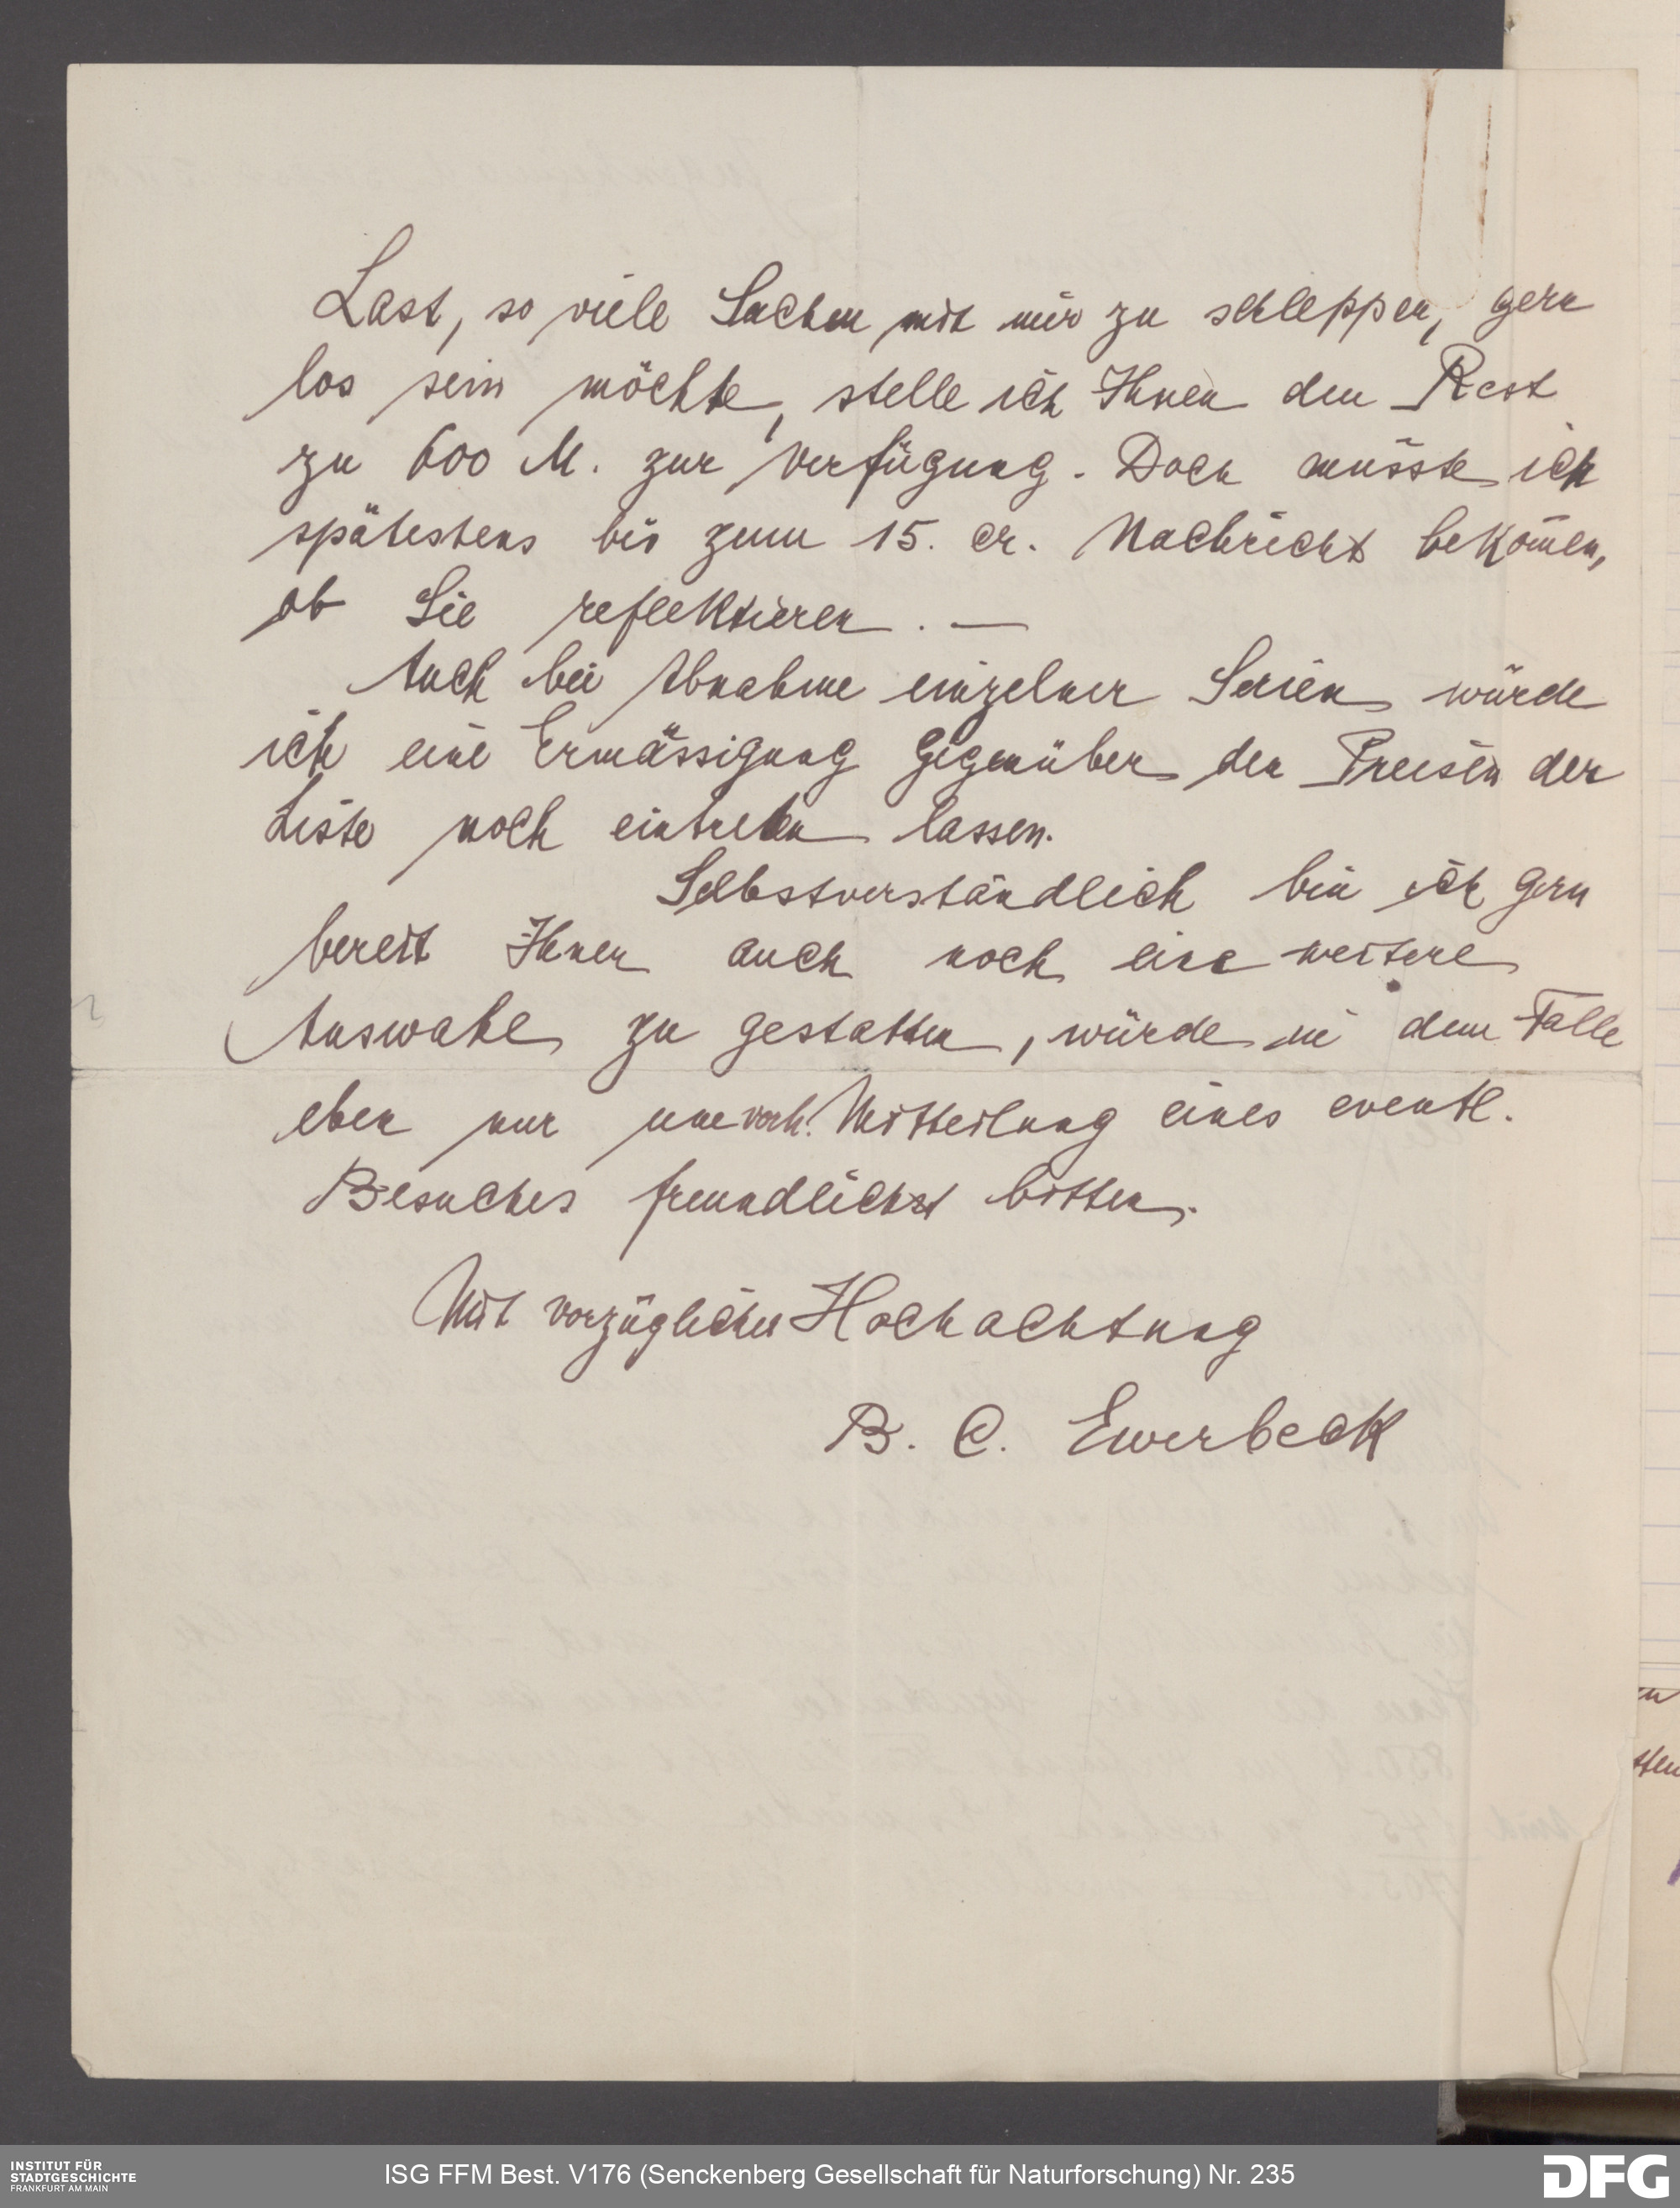 Last, so viele Sachen mit mir zu schleppen, gern
los sein möchte, stelle ich Ihnen den Rest
zu 600 M. zur Verfügung. Doch müsste ich
spätestens bis zum 15. cr. Nachricht bekom̄en,
ob Sie reflektieren. —
Auch bei Abnahme einzelner Serien würde
ich eine Ermässigung gegenüber den Preisen der
Liste noch eintreten lassen.
Selbstverständlich bin ich gern
bereit Ihnen auch noch eine weitere
Auswahl zu gestatten, würde in dem Falle
eben nur um vorh. Mitteilung eines eventl.
Besuches freundlichst bitten.
Mit vorzüglicher Hochachtung
B. C. Ewerbeck
INSTITUT FÜR
STADTGESCHICHTE
FRANKFURT AM MAIN
ISG FFM Best. V176 (Senckenberg Gesellschaft für Naturforschung) Nr. 235
DFG